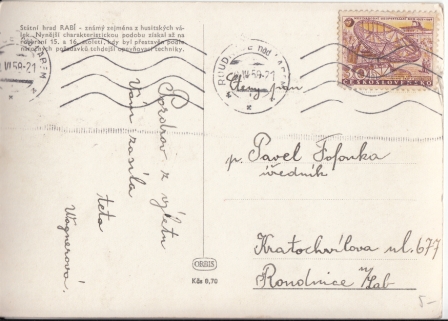 Státní hrad RABÍ - známý zejména z husitských vá-
lek. Nynější charakteristickou podobu získal až na
rozhraní 15. a 16. století, kdy byl přestavěn podle
náročných požadavků tehdejší opevňovací techniky.
Pozdrav z výletu
Vám zasílá
teta
Wagnerová.
ORBIS
Kčs 0,70
ČESKOSLOVENSKO
pan
p. Pavel Fofonka
úředník
Kratochvílova ul. 677
Roudnice n/Lab